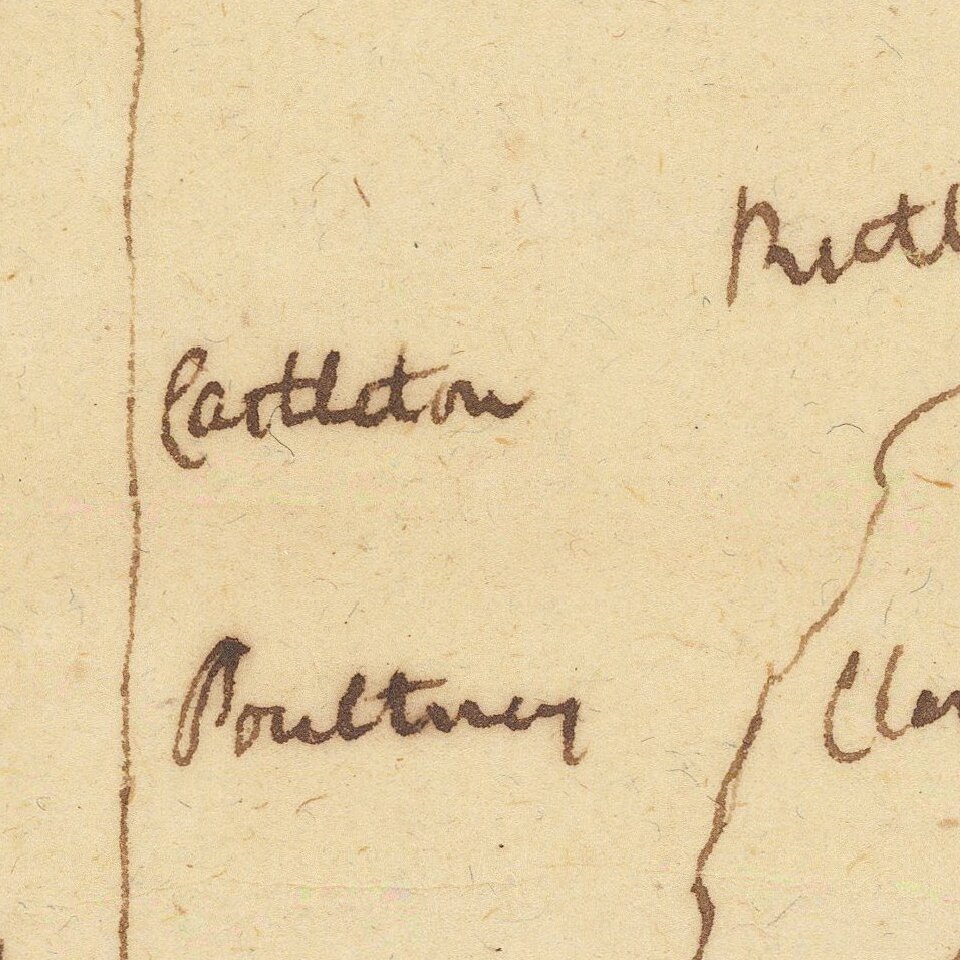 Rutl
Castleton
Poultney
Clar